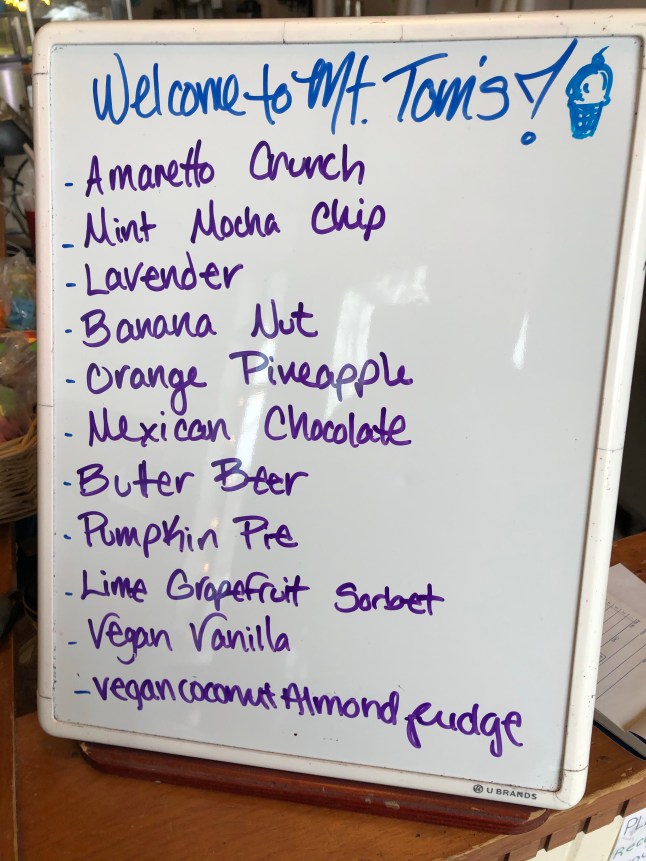 Welcome to Mt. Tom's!
- Amaretto Crunch
- Mint Mocha Chip
- Lavender
- Banana Nut
- Orange Pineapple
- Mexican Chocolate
- Buter Beer
- Pumpkin Pie
- Lime Grapefruit Sorbet
- Vegan Vanilla
- vegan coconut Almond fudge
U BRANDS